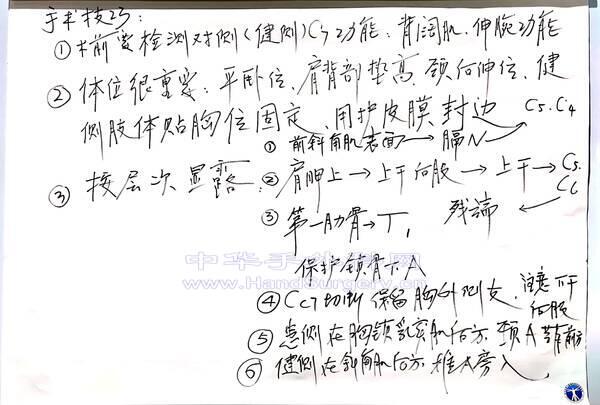 手术技巧:
① 术前要检测对侧(健侧)C7功能:背阔肌.伸腕功能
② 体位很重要:平卧位、肩背部垫高、颈后伸位、健
侧肢体贴胸位固定、用护皮膜封边
③ 按层次显露:
① 前斜角肌表面→膈N→C5.C4
② 肩胛上→上干后股→上干→C5.
C6
残端
③ 第一肋骨→T1
保护锁骨下A
④ CC7切断保留胸外侧支,注意下干
后股
⑤ 患侧在胸锁乳突肌后方、颈A 前方
⑥ 健侧在斜角肌后方、椎体旁入
中华手外科网
www.HandSurgery.cn